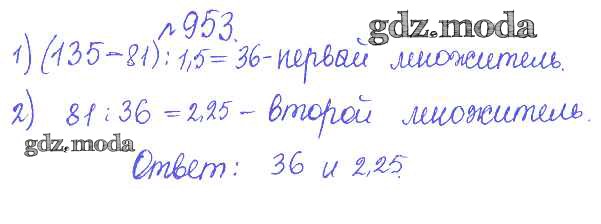 №953.
gdz.moda
1) (135-81):1,5=36-первый множитель.
2) 81:36=2,25-второй множитель.
gdz.moda
Ответ: 36 и 2,25.